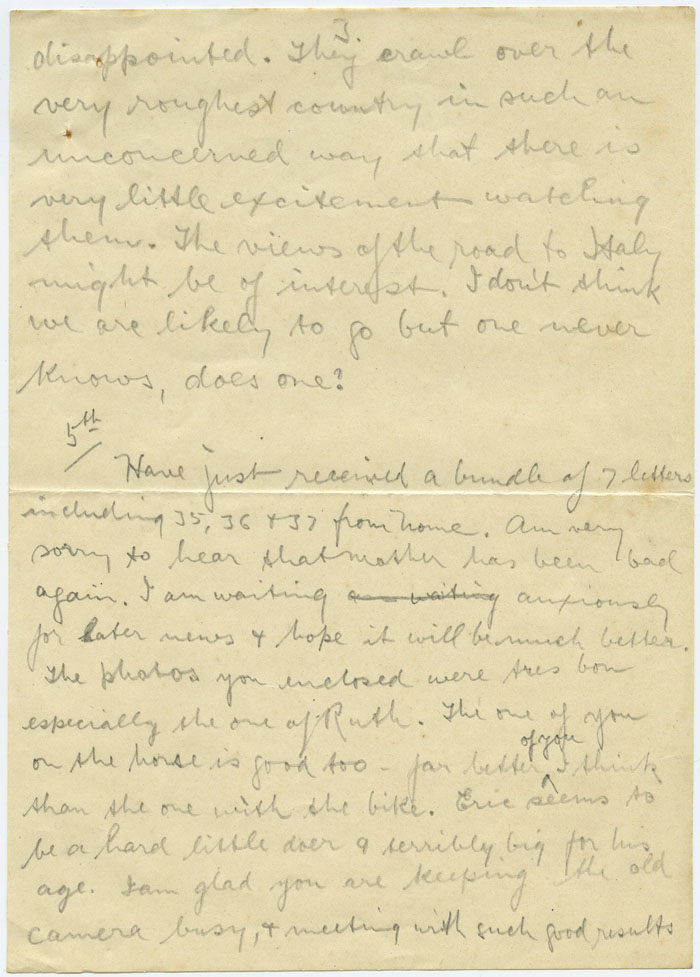 3.
disappointed. They crawl over the
very roughest country in such an
unconcerned way that there is
very little excitement watching
them. The views of the road to Italy
might be of interest. I don't think
we are likely to go but one never
knows, does one?
5th
Have just received a bundle of 7 letters
including 35, 36 & 37 from home. Am very
sorry to hear that mother has been bad
again. I am waiting am waiting anxiously
for later news & hope it will be much better.
The photos you enclosed were tres bon
especially the one of Ruth. The one of you
on the horse is good too - far better of you I think
than the one with the bike. Eric seems to
be a hard little doer & terribly big for his
age. I am glad you are keeping the old
camera busy, & meeting with such good results